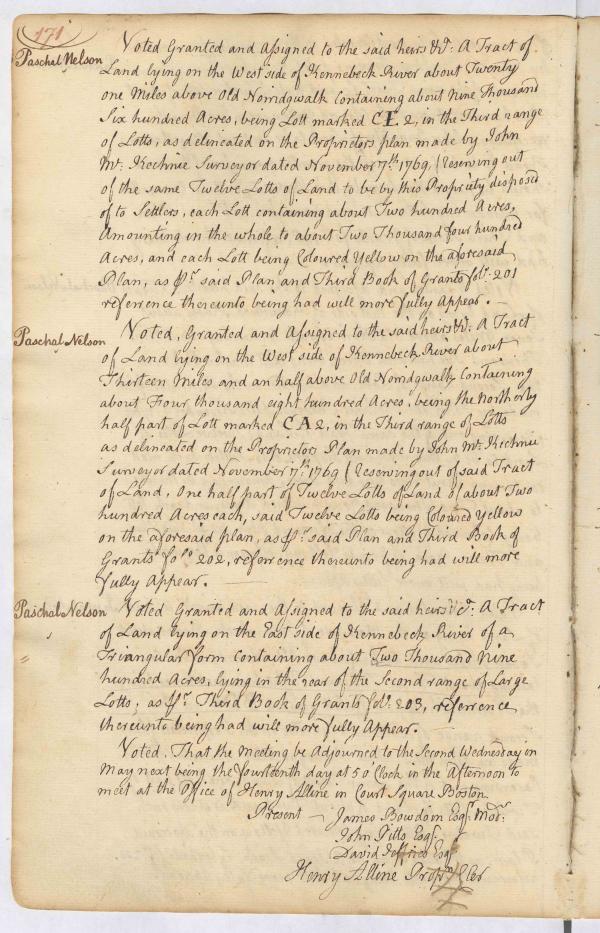 171
Paschal Nelson
Voted Granted and Assigned to the said heirs &c: A Tract of
Land lying on the West side of Kennebeck River about Twenty
one Miles above Old Norridgwalk Containing about Nine Thousand
Six hundred Acres, being Lott marked CE2, in the Third range
of Lotts, as delineated on the Proprietors plan made by John
Mc. Kechnie Surveyor dated November 7th 1769, (Reserving out
of the same Twelve Lotts of Land to be by this Propriety disposed
of to Settlers, each Lott containing about Two hundred Acres,
Amounting in the whole to about Two Thousand four hundred
Acres, and each Lott being Coloured Yellow on the aforesaid
Plan, as pr. said Plan and Third Book of Grants folo. 201
referrence thereunto being had will more fully Appear. —
Paschal Nelson
Voted, Granted and Assigned to the said heirs &c: A Tract
of Land lying on the West side of Kennebeck River about
Thirteen Miles and an half above Old Norridgwalk Containing
about Four thousand eight hundred Acres, being the Northerly
half part of Lott marked CA2, in the Third range of Lotts
as delineated on the Proprietors Plan made by John Mc. Kechnie
Surveyor dated November 7th. 1769 (Reserving out of said Tract
of Land, One half part of Twelve Lotts of Land of about Two
hundred Acres each, said Twelve Lotts being Coloured Yellow
on the aforesaid plan, as pr. said Plan and Third Book of
Grants folo 202, referrence thereunto being had will more
fully Appear. —
Paschal Nelson
Voted Granted and Assigned to the said heirs &c: A Tract
of Land lying on the East side of Kennebeck River of a
Triangular form Containing about Two Thousand Nine
hundred Acres, lying in the rear of the Second range of Large
Lotts, as pr. Third Book of Grants folo. 203, referrence
thereunto being had will more fully Appear. —
Voted, That the Meeting be Adjourned to the Second Wednesday in
May next being the fourteenth day at 5 O'Clock in the Afternoon to
meet at the Office of Henry Alline in Court Square Boston
Present — James Bowdoin Esqr. Modr:
John Pitts Esqr.
David Jeffries Esqr
Henry Alline Proprs Cler